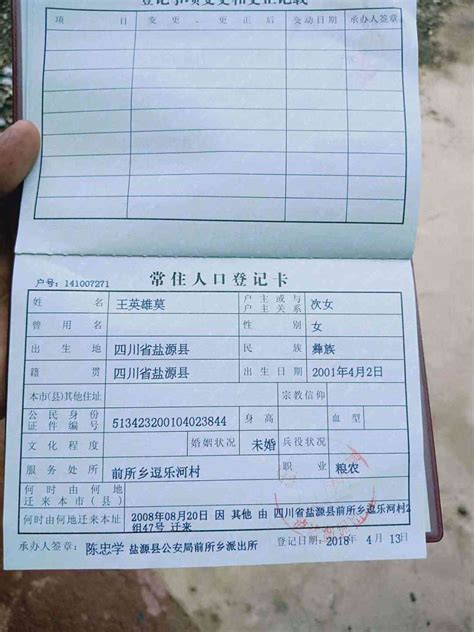 登记事项变更和更正记载
项 目 变更、更正后 变动日期 承办人签章
户号: 141007271
常住人口登记卡
姓 名 王英雄莫 户主或与户主关系 次女
曾用名 性 别 女
出生地 四川省盐源县 民 族 彝族
籍 贯 四川省盐源县 出生日期 2001年4月2日
本市(县)其他住址 宗教信仰
公民身份证件编号 513423200104023844 身 高 血 型
文化程度 婚姻状况 未婚 兵役状况
服务处所 前所乡逗乐河村 职 业 粮农
何时由何地迁来本市(县)
何时由何地迁来本址 2008年08月20日 因 其他 由 四川省盐源县前所乡逗乐河村2
组47号 迁来
承办人签章: 陈忠学 盐源县公安局前所乡派出所 登记日期: 2018年 4月 13日